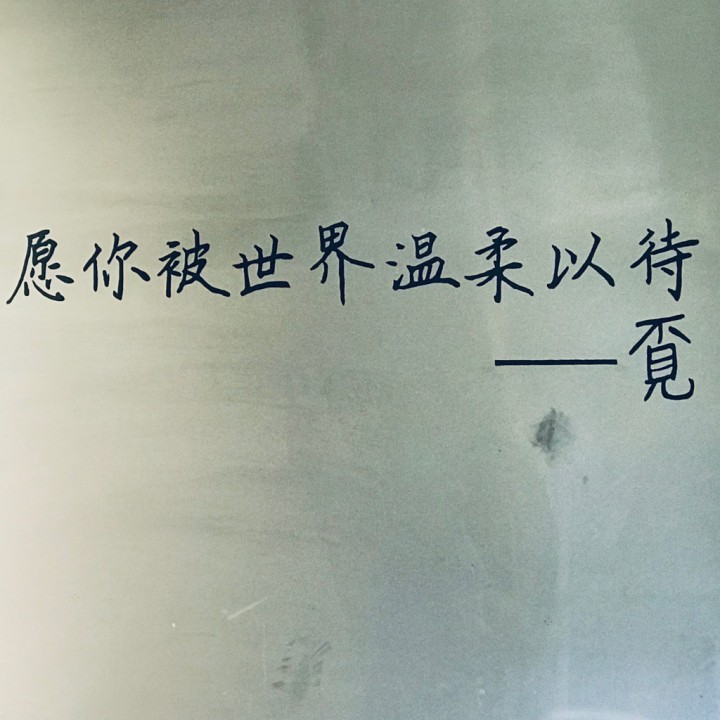 愿你被世界温柔以待
——覔